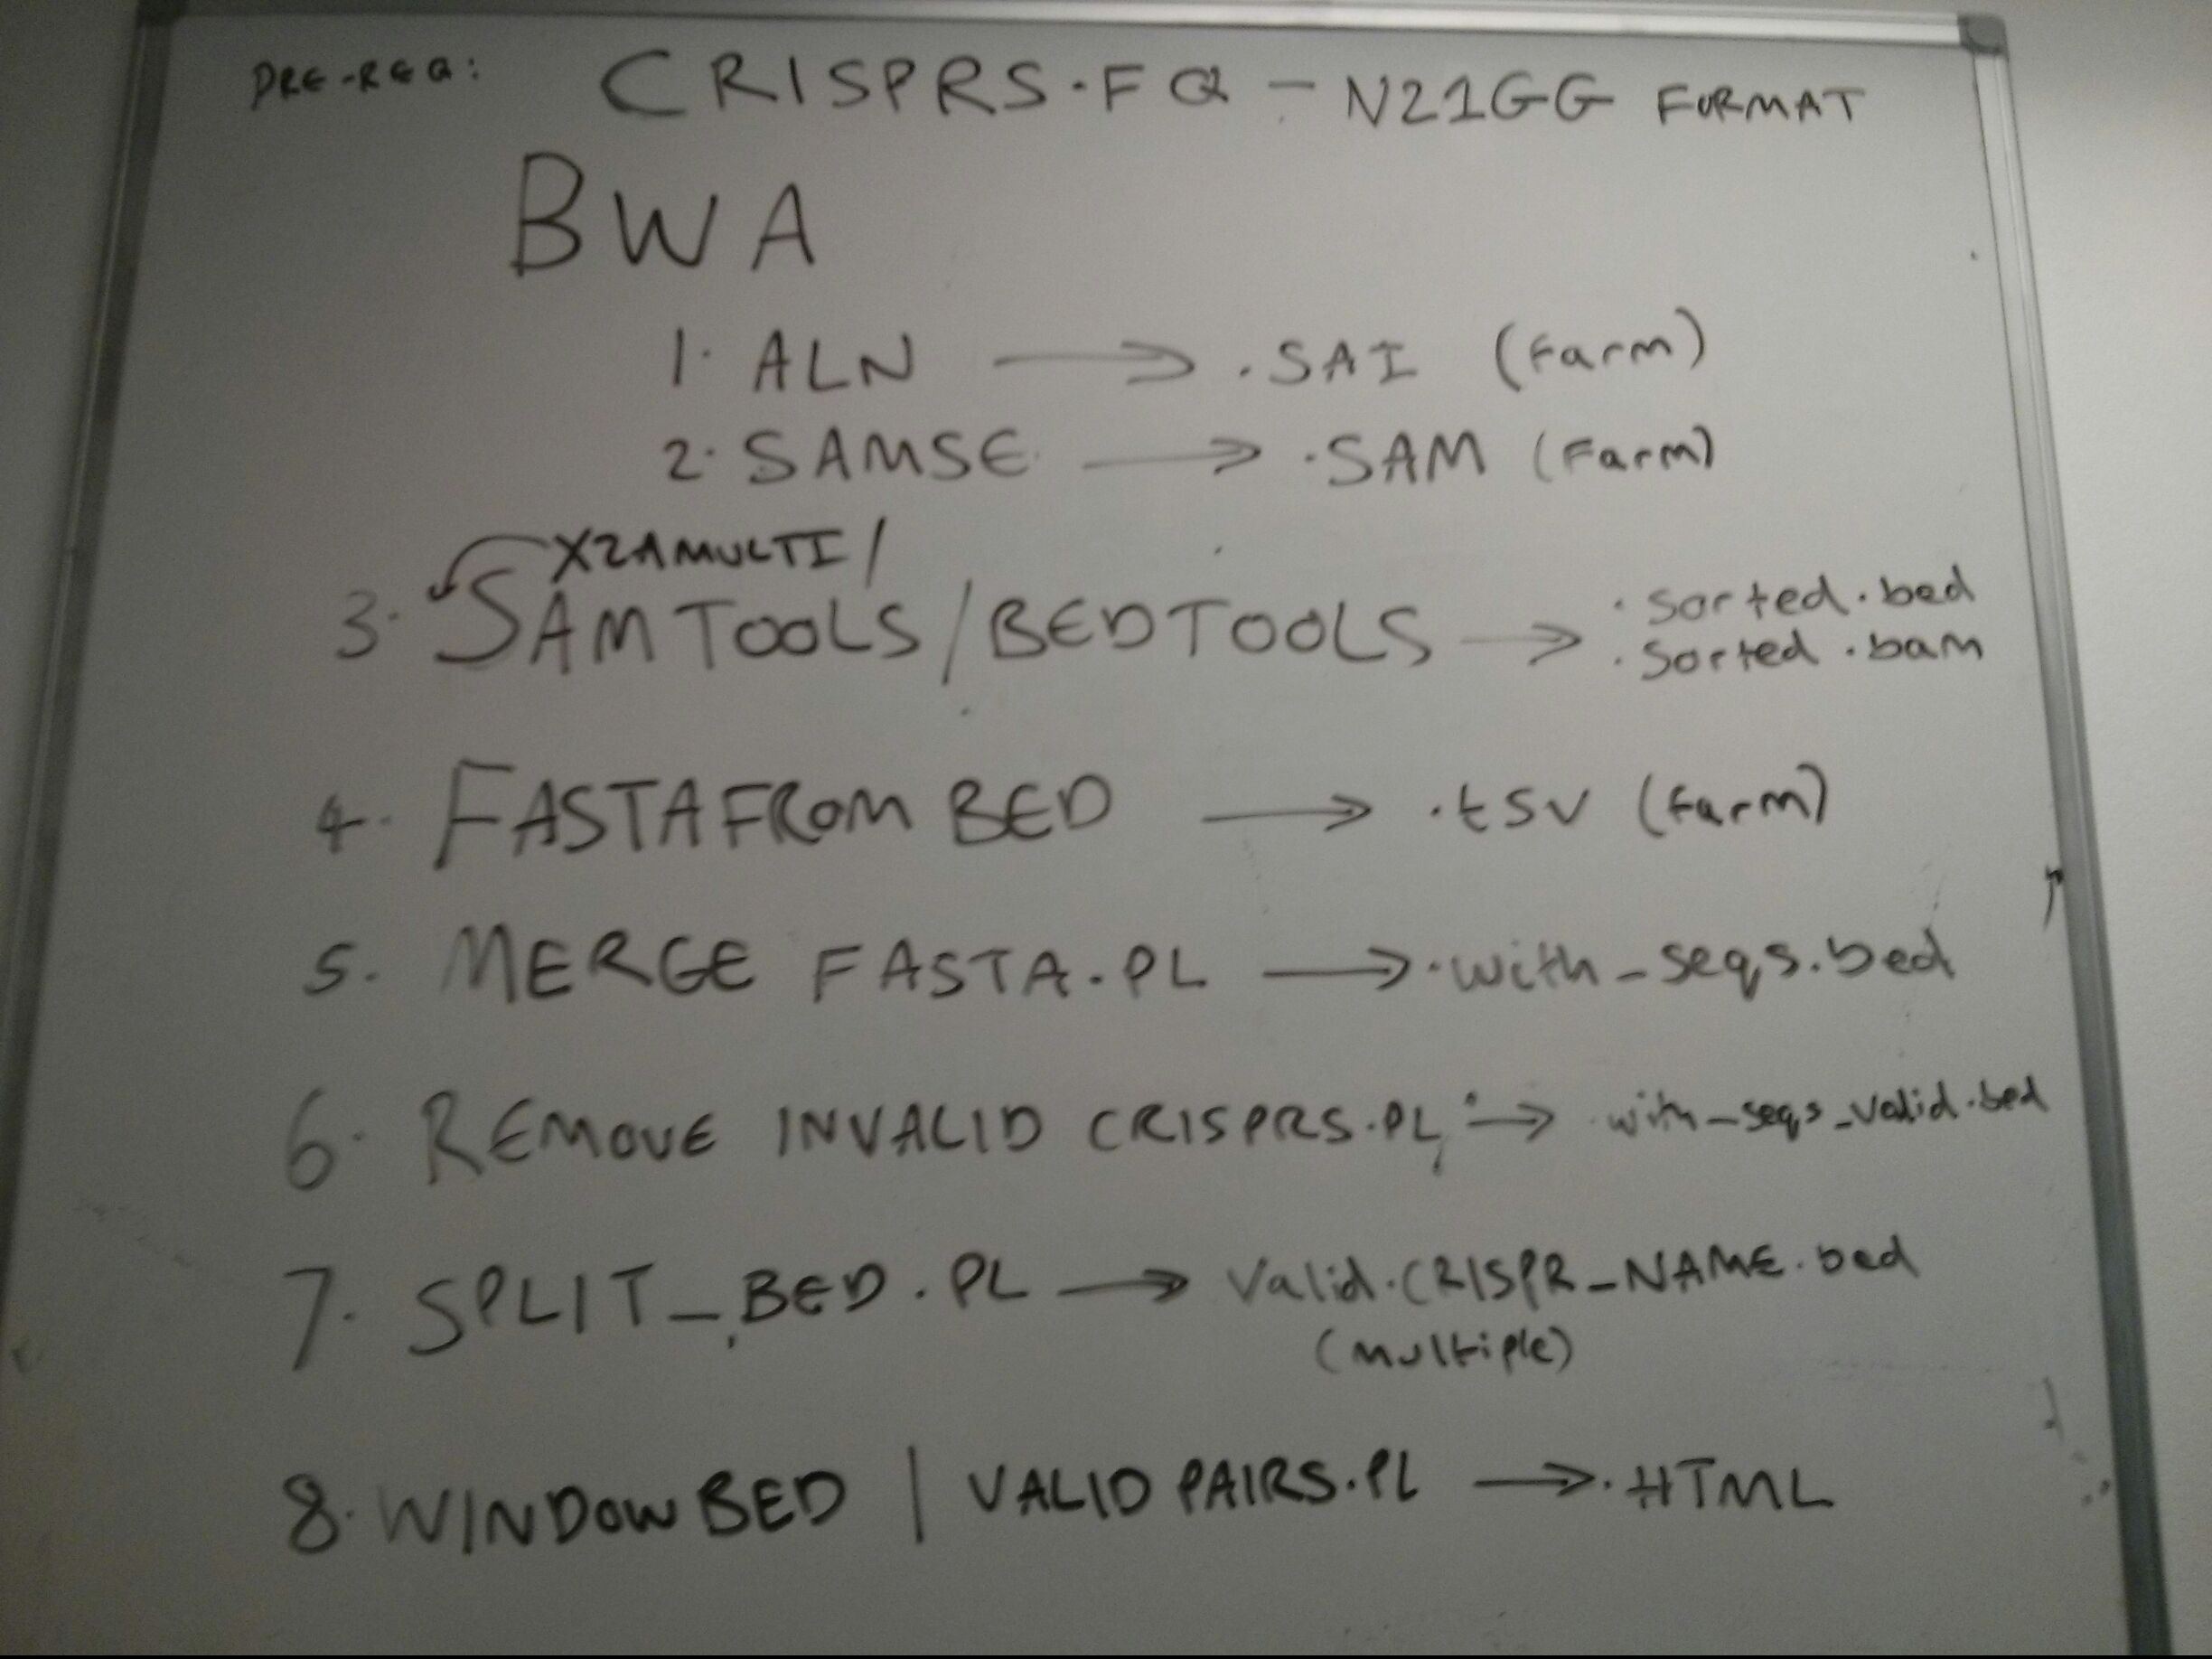 PRE-REQ: CRISPRS.FQ - N21GG FORMAT
BWA
1. ALN → .SAI (Farm)
2. SAMSE → .SAM (Farm)
X2AMULTI /
3. SAMTOOLS / BEDTOOLS → .sorted.bed
.sorted.bam
4. FASTAFROMBED → .tsv (farm)
5. MERGE FASTA.PL → .with_seqs.bed
6. REMOVE INVALID CRISPRS.PL → .with_seqs_valid.bed
7. SPLIT_BED.PL → Valid.CRISPR_NAME.bed
(multiple)
8. WINDOWBED | VALIDPAIRS.PL → .HTML